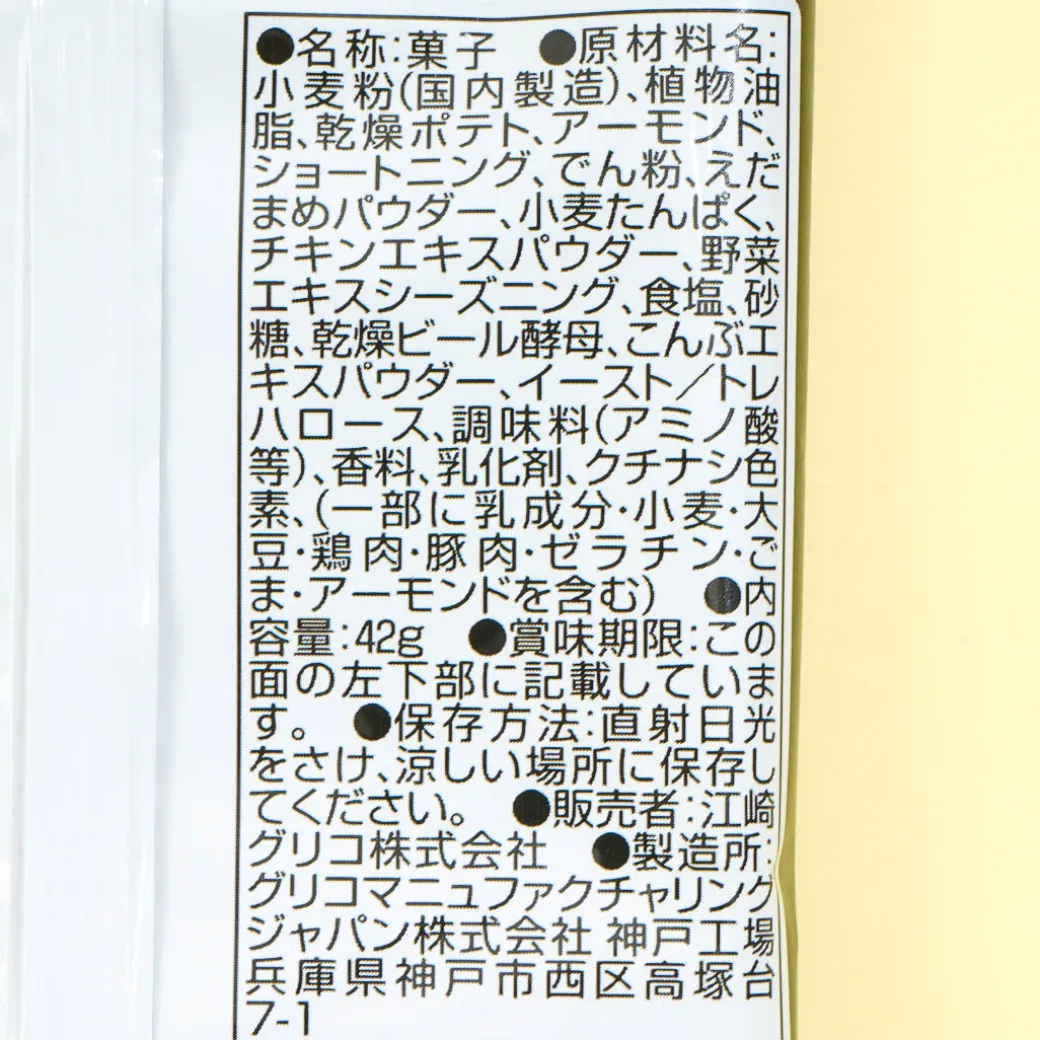 ●名称:菓子 ●原材料名:
小麦粉(国内製造)、植物油
脂、乾燥ポテト、アーモンド、
ショートニング、でん粉、えだ
まめパウダー、小麦たんぱく、
チキンエキスパウダー、野菜
エキスシーズニング、食塩、砂
糖、乾燥ビール酵母、こんぶエ
キスパウダー、イースト／トレ
ハロース、調味料(アミノ酸
等)、香料、乳化剤、クチナシ色
素、(一部に乳成分・小麦・大
豆・鶏肉・豚肉・ゼラチン・ご
ま・アーモンドを含む) ●内
容量:42g ●賞味期限:この
面の左下部に記載していま
す。 ●保存方法:直射日光
をさけ、涼しい場所に保存し
てください。 ●販売者:江崎
グリコ株式会社 ●製造所:
グリコマニュファクチャリング
ジャパン株式会社 神戸工場
兵庫県神戸市西区高塚台
7-1